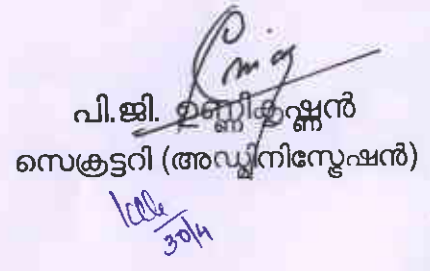 പി.ജി. ഉണ്ണികൃഷ്ണൻ
സെക്രട്ടറി (അഡ്മിനിസ്ട്രേഷൻ)
30/4